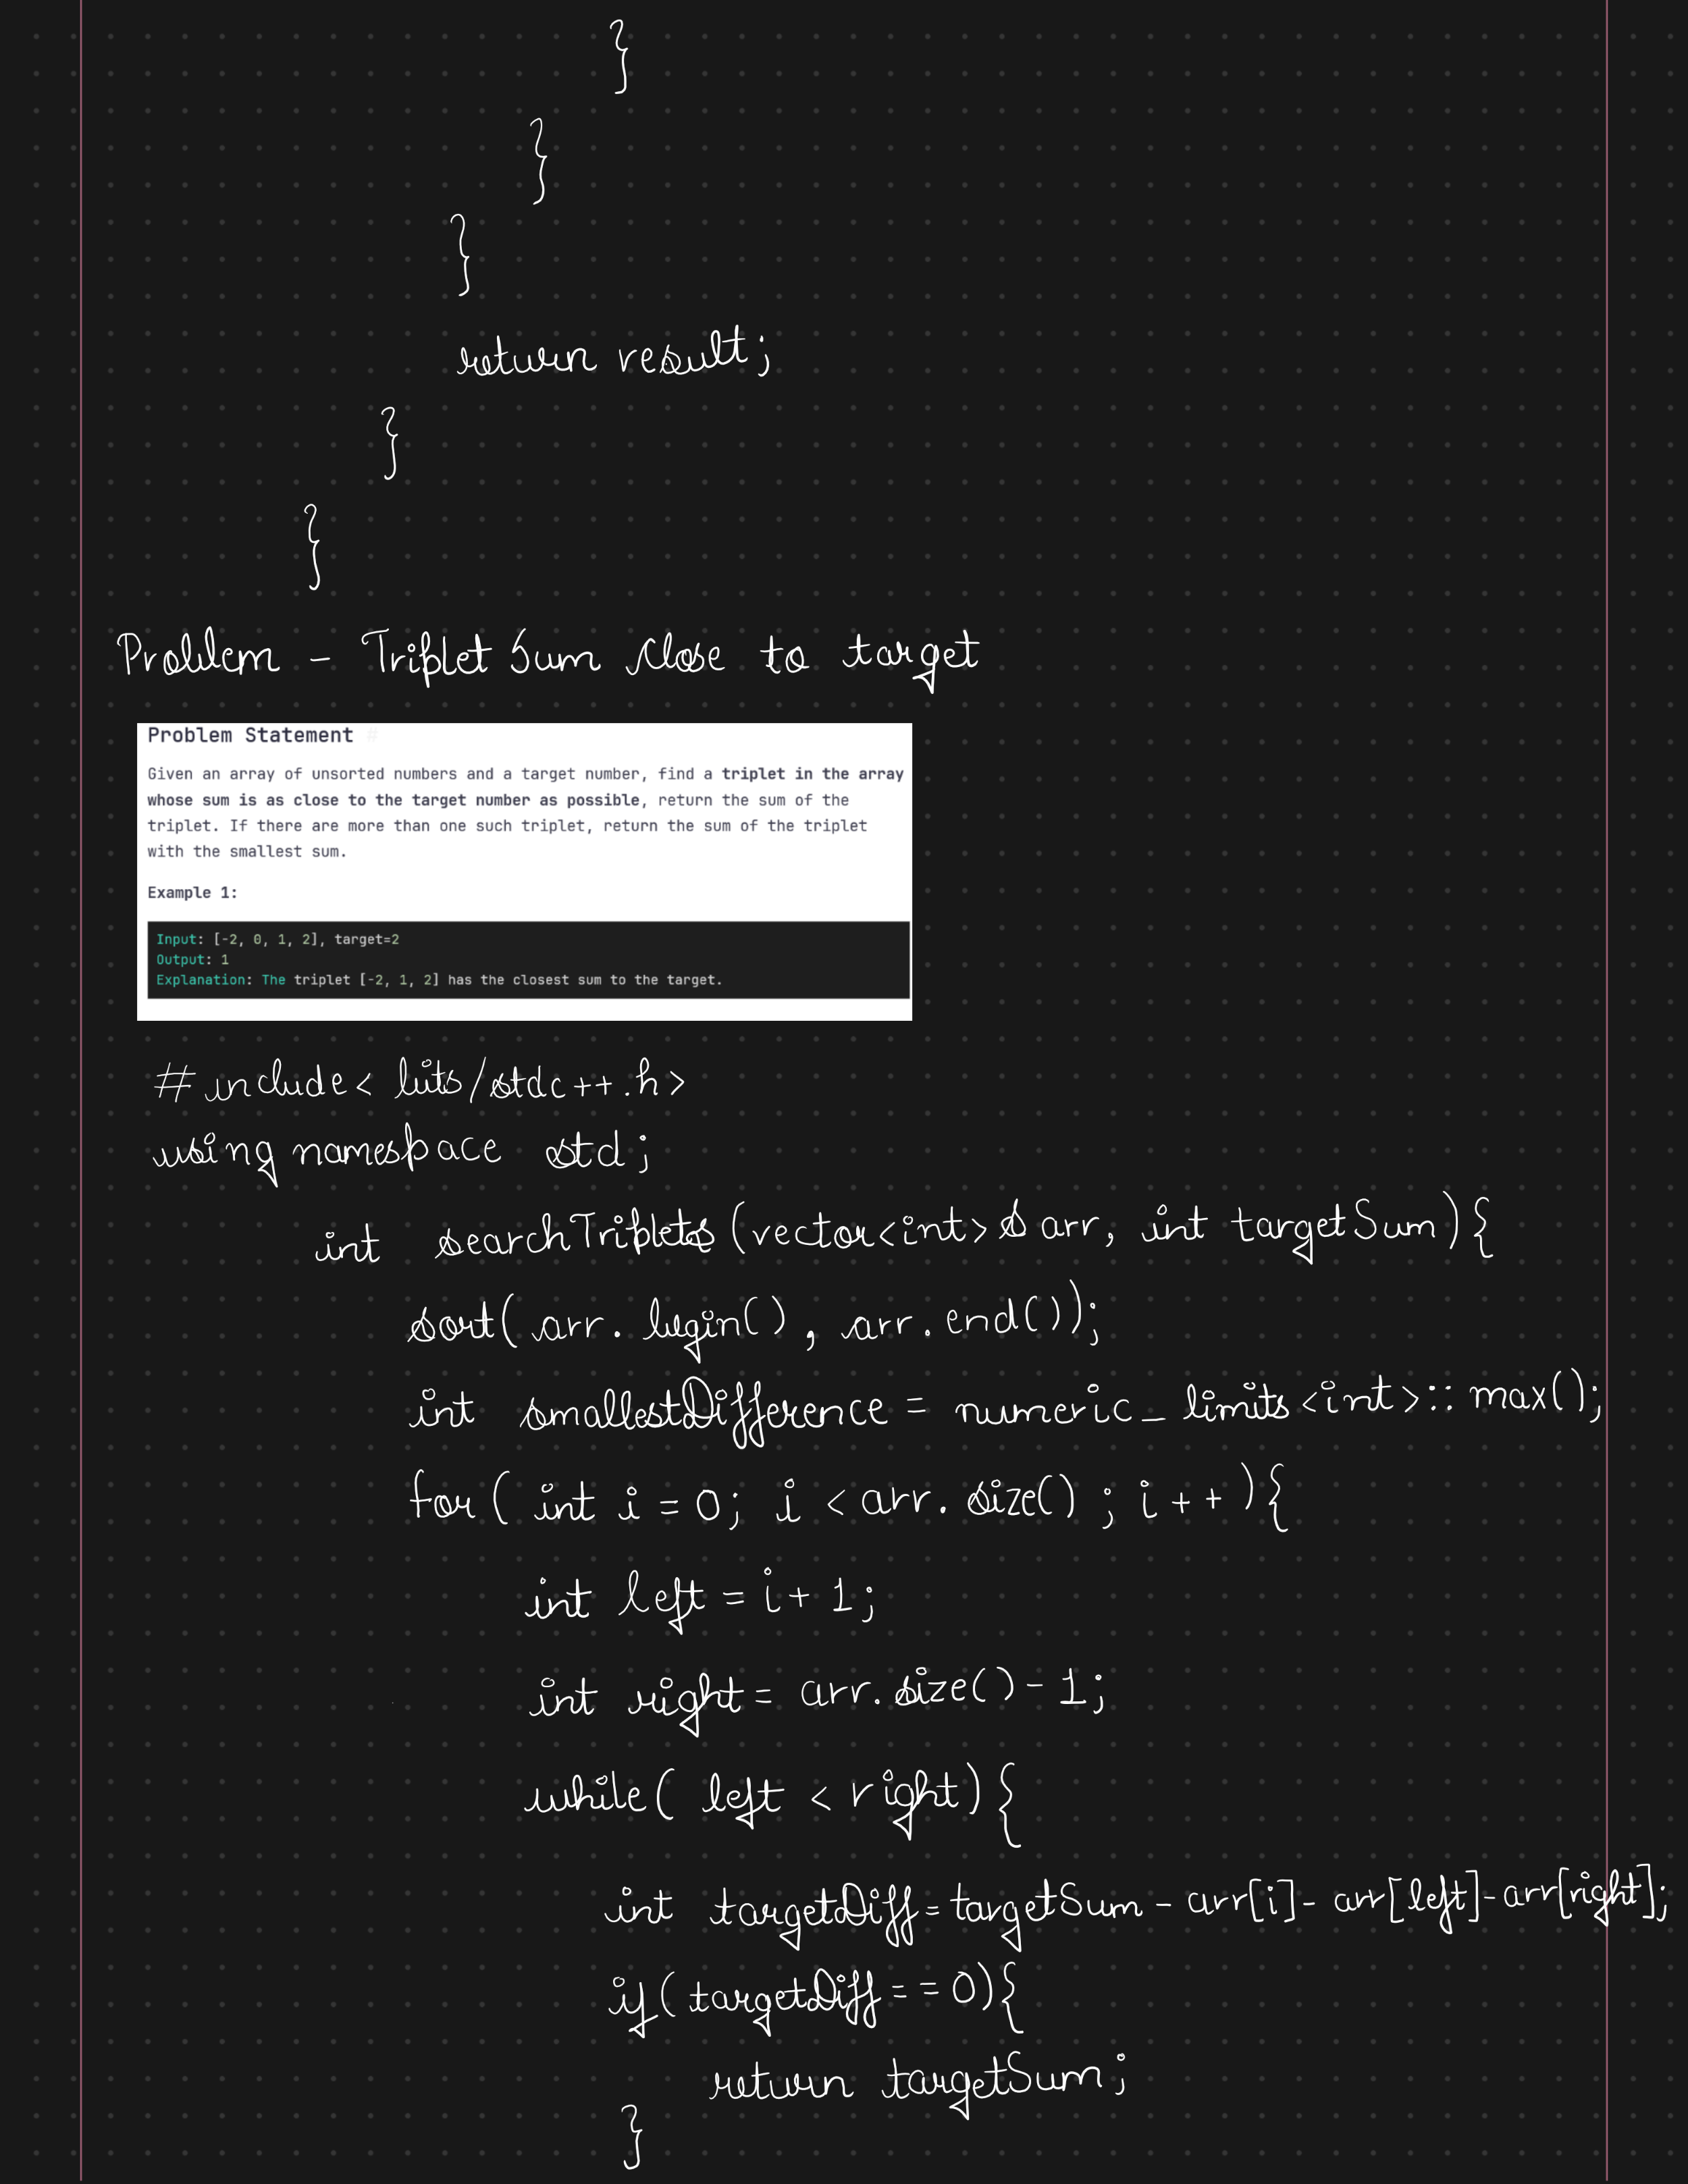 }
}
}
return result;
}
}
Problem - Triplet Sum Close to target
Problem Statement #
Given an array of unsorted numbers and a target number, find a triplet in the array
whose sum is as close to the target number as possible, return the sum of the
triplet. If there are more than one such triplet, return the sum of the triplet
with the smallest sum.
Example 1:
Input: [-2, 0, 1, 2], target=2
Output: 1
Explanation: The triplet [-2, 1, 2] has the closest sum to the target.
#include< bits/stdc++.h>
using namespace std;
int searchTriplets (vector<int>& arr, int targetSum){
sort( arr. begin() , arr. end());
int smallestDifference = numeric_limits<int>:: max();
for( int i = 0; i < arr. size() ; i++ ){
int left = i + 1;
int right = arr. size() - 1;
while( left < right){
int targetDiff = targetSum - arr[i] - arr[left] - arr[right];
if( targetDiff == 0){
return targetSum;
}